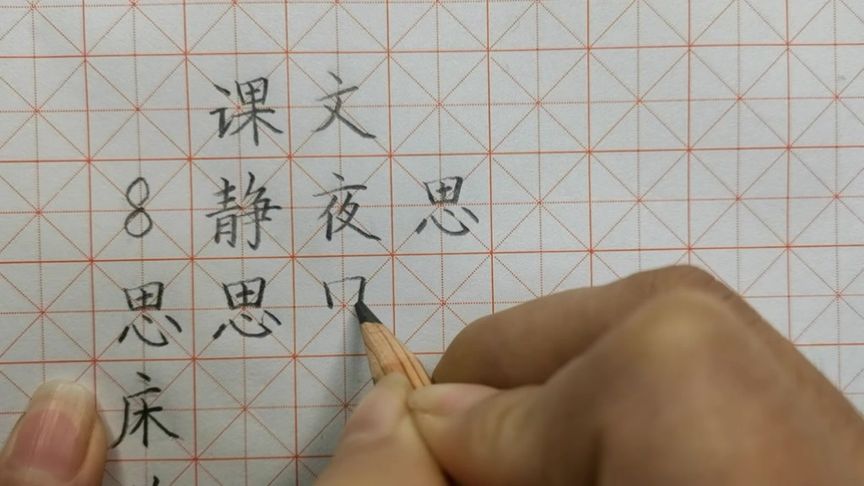 课文
8 静夜思
思思
床